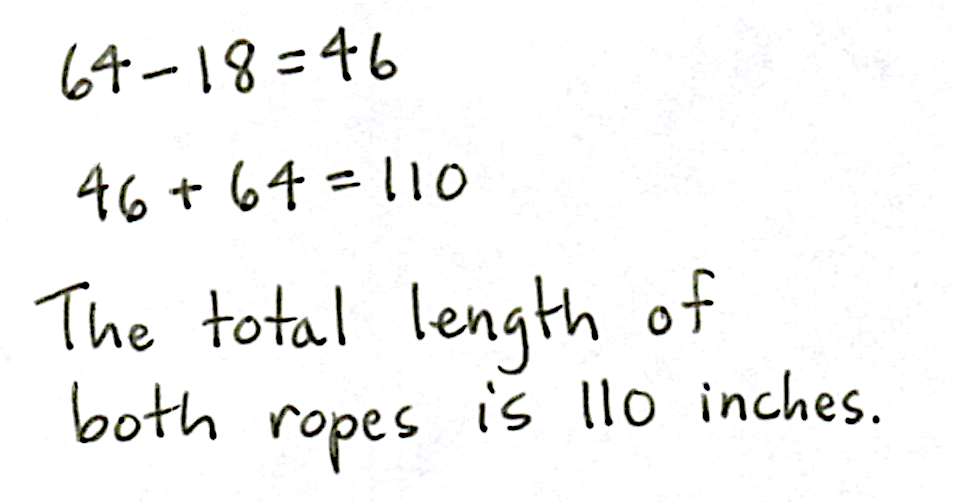 64-18=46
46+64=110
The total length of
both ropes is 110 inches.